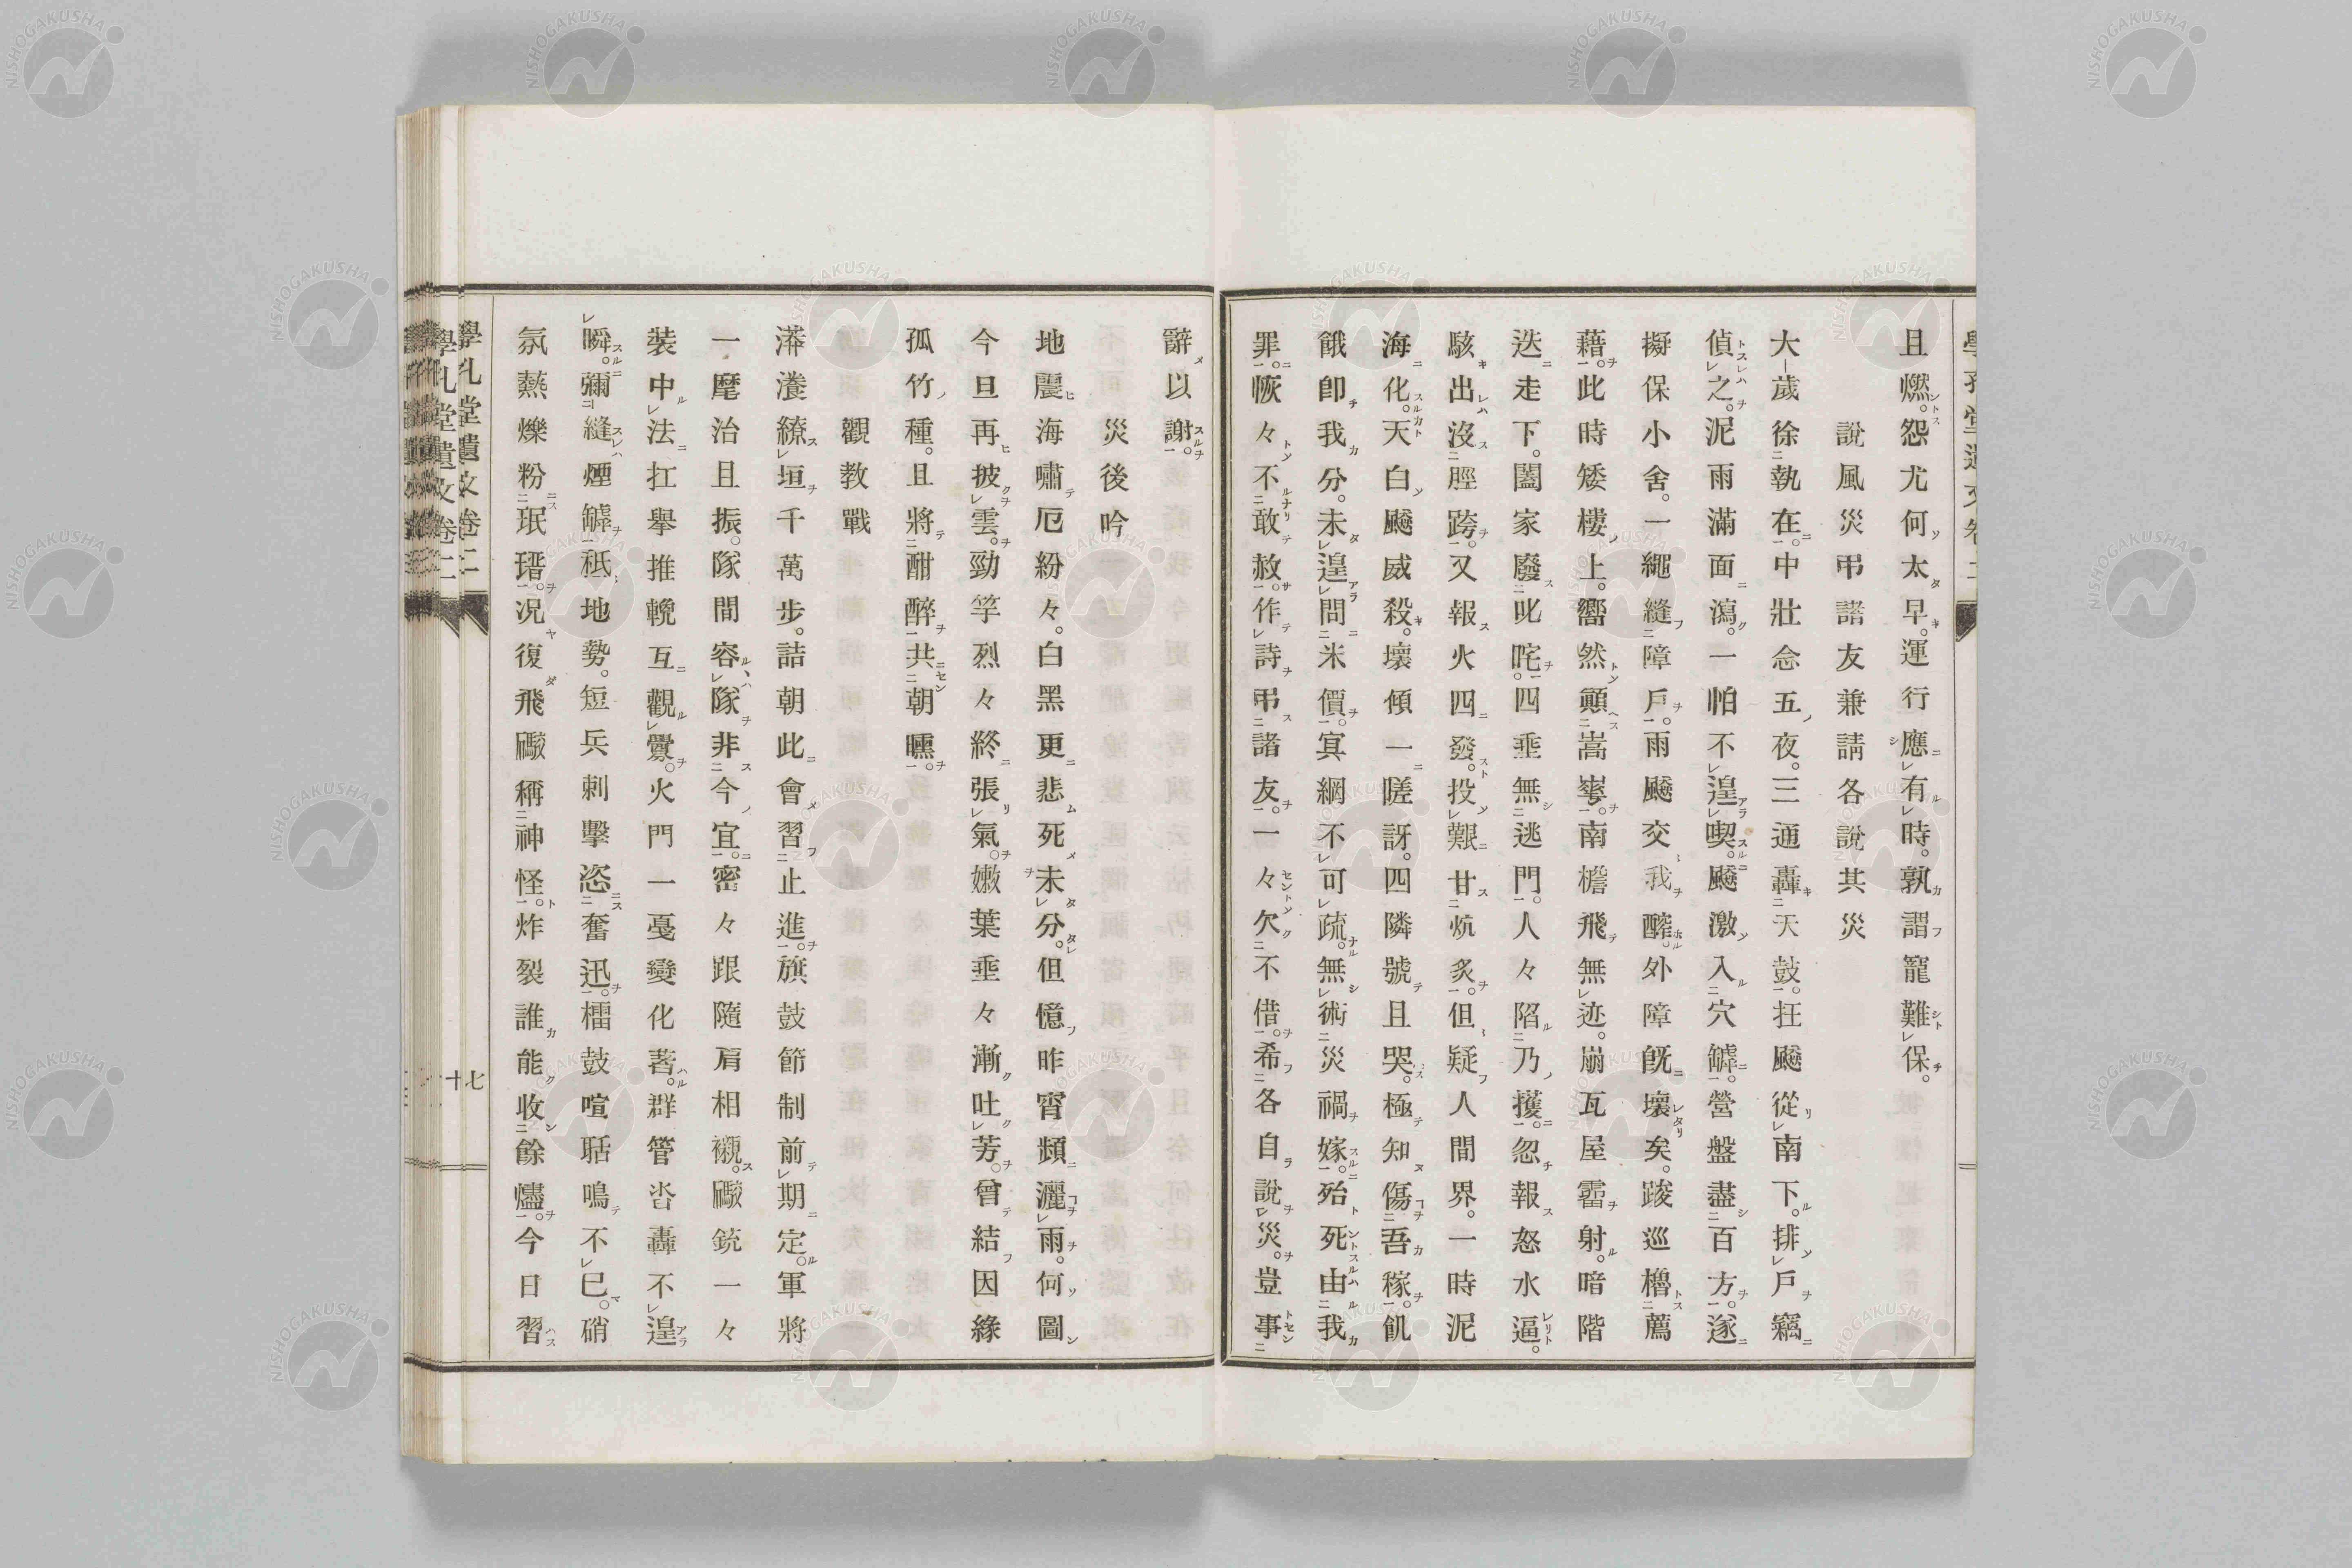 且燃。怨尤何太早。運行應有時。孰謂寵難保。
說風災弔諸友兼請各說其災
大歲徐執在。中壯念五夜。三通轟天鼓。狂颷從南下。排戶竊
偵之。泥雨滿面瀉。一怕不遑喫。颷激入穴罅。營盤盡百方。遂
擬保小舍。一繩縫障戶。雨颷交我醡。外障既壞矣。踆巡櫓薦
藉。此時矮樓上。嚮然顚嵩崋。南檐飛無迹。崩瓦屋霤射。暗階
迭走下。闔家廢叱咤。四垂無逃門。人々陷乃擭。忽報怒水逼。
駭出沒脛跨。又報火四發。投艱甘炕炙。但疑人間界。一時泥
海化。天白颷威殺。壞傾一嗟訝。四隣號且哭。極知傷吾稼。飢
餓卽我分。未遑問米價。寘網不可疏。無術災禍嫁。殆死由我
罪。恢々不敢赦。作詩弔諸友。一々欠不借。希各自說災。豈事
辭以謝。
災後吟
地震海嘯厄紛々。白黑更悲死未分。但憶昨宵頻灑雨。何圖
今旦再披雲。勁竿烈々終張氣。嫩葉垂々漸吐芳。曾結因緣
孤竹種。且將酣醉共朝曛。
觀教戰
漭瀁繚垣千萬步。詰朝此會習止進。旗鼓節制前期定。軍將
一麾治且振。隊間容隊非今宜。密々跟隨肩相襯。礮銃一々
裝中法。扛擧推輓互觀釁。火門一戞變化著。群管沓轟不遑
瞬。彌縫煙罅秖地勢。短兵刺擊恣奮迅。櫑鼓喧聒鳴不已。硝
氛爇爍粉珉瑨。況復飛礮稱神怪。炸裂誰能收餘燼。今日習
學孔堂遺文卷二
七